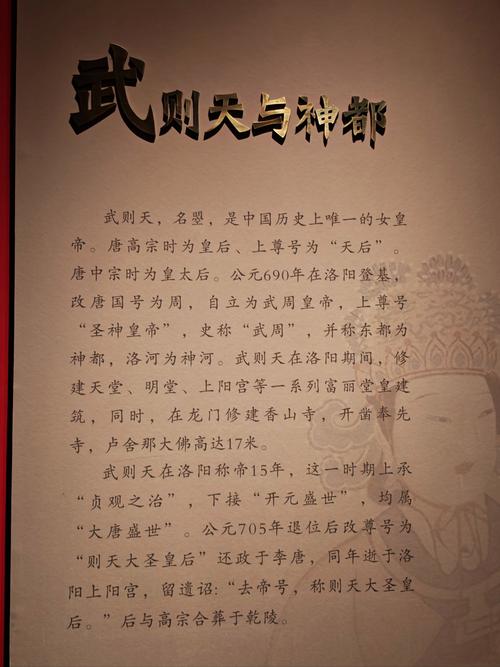 武则天与神都
武则天，名曌，是中国历史上唯一的女皇
帝。唐高宗时为皇后、上尊号为“天后”。
唐中宗时为皇太后。公元690年在洛阳登基，
改唐国号为周，自立为武周皇帝，上尊号
“圣神皇帝”，史称“武周”，并称东都为
神都，洛河为神河。武则天在洛阳期间，修
建天堂、明堂、上阳宫等一系列富丽堂皇建
筑，同时，在龙门修建香山寺，开凿奉先
寺，卢舍那大佛高达17米。
武则天在洛阳称帝15年，这一时期上承
“贞观之治”，下接“开元盛世”，均属
“大唐盛世”。公元705年退位后改尊号为
“则天大圣皇后”还政于李唐，同年逝于洛
阳上阳宫，留遗诏：“去帝号，称则天大圣皇
后。”后与高宗合葬于乾陵。